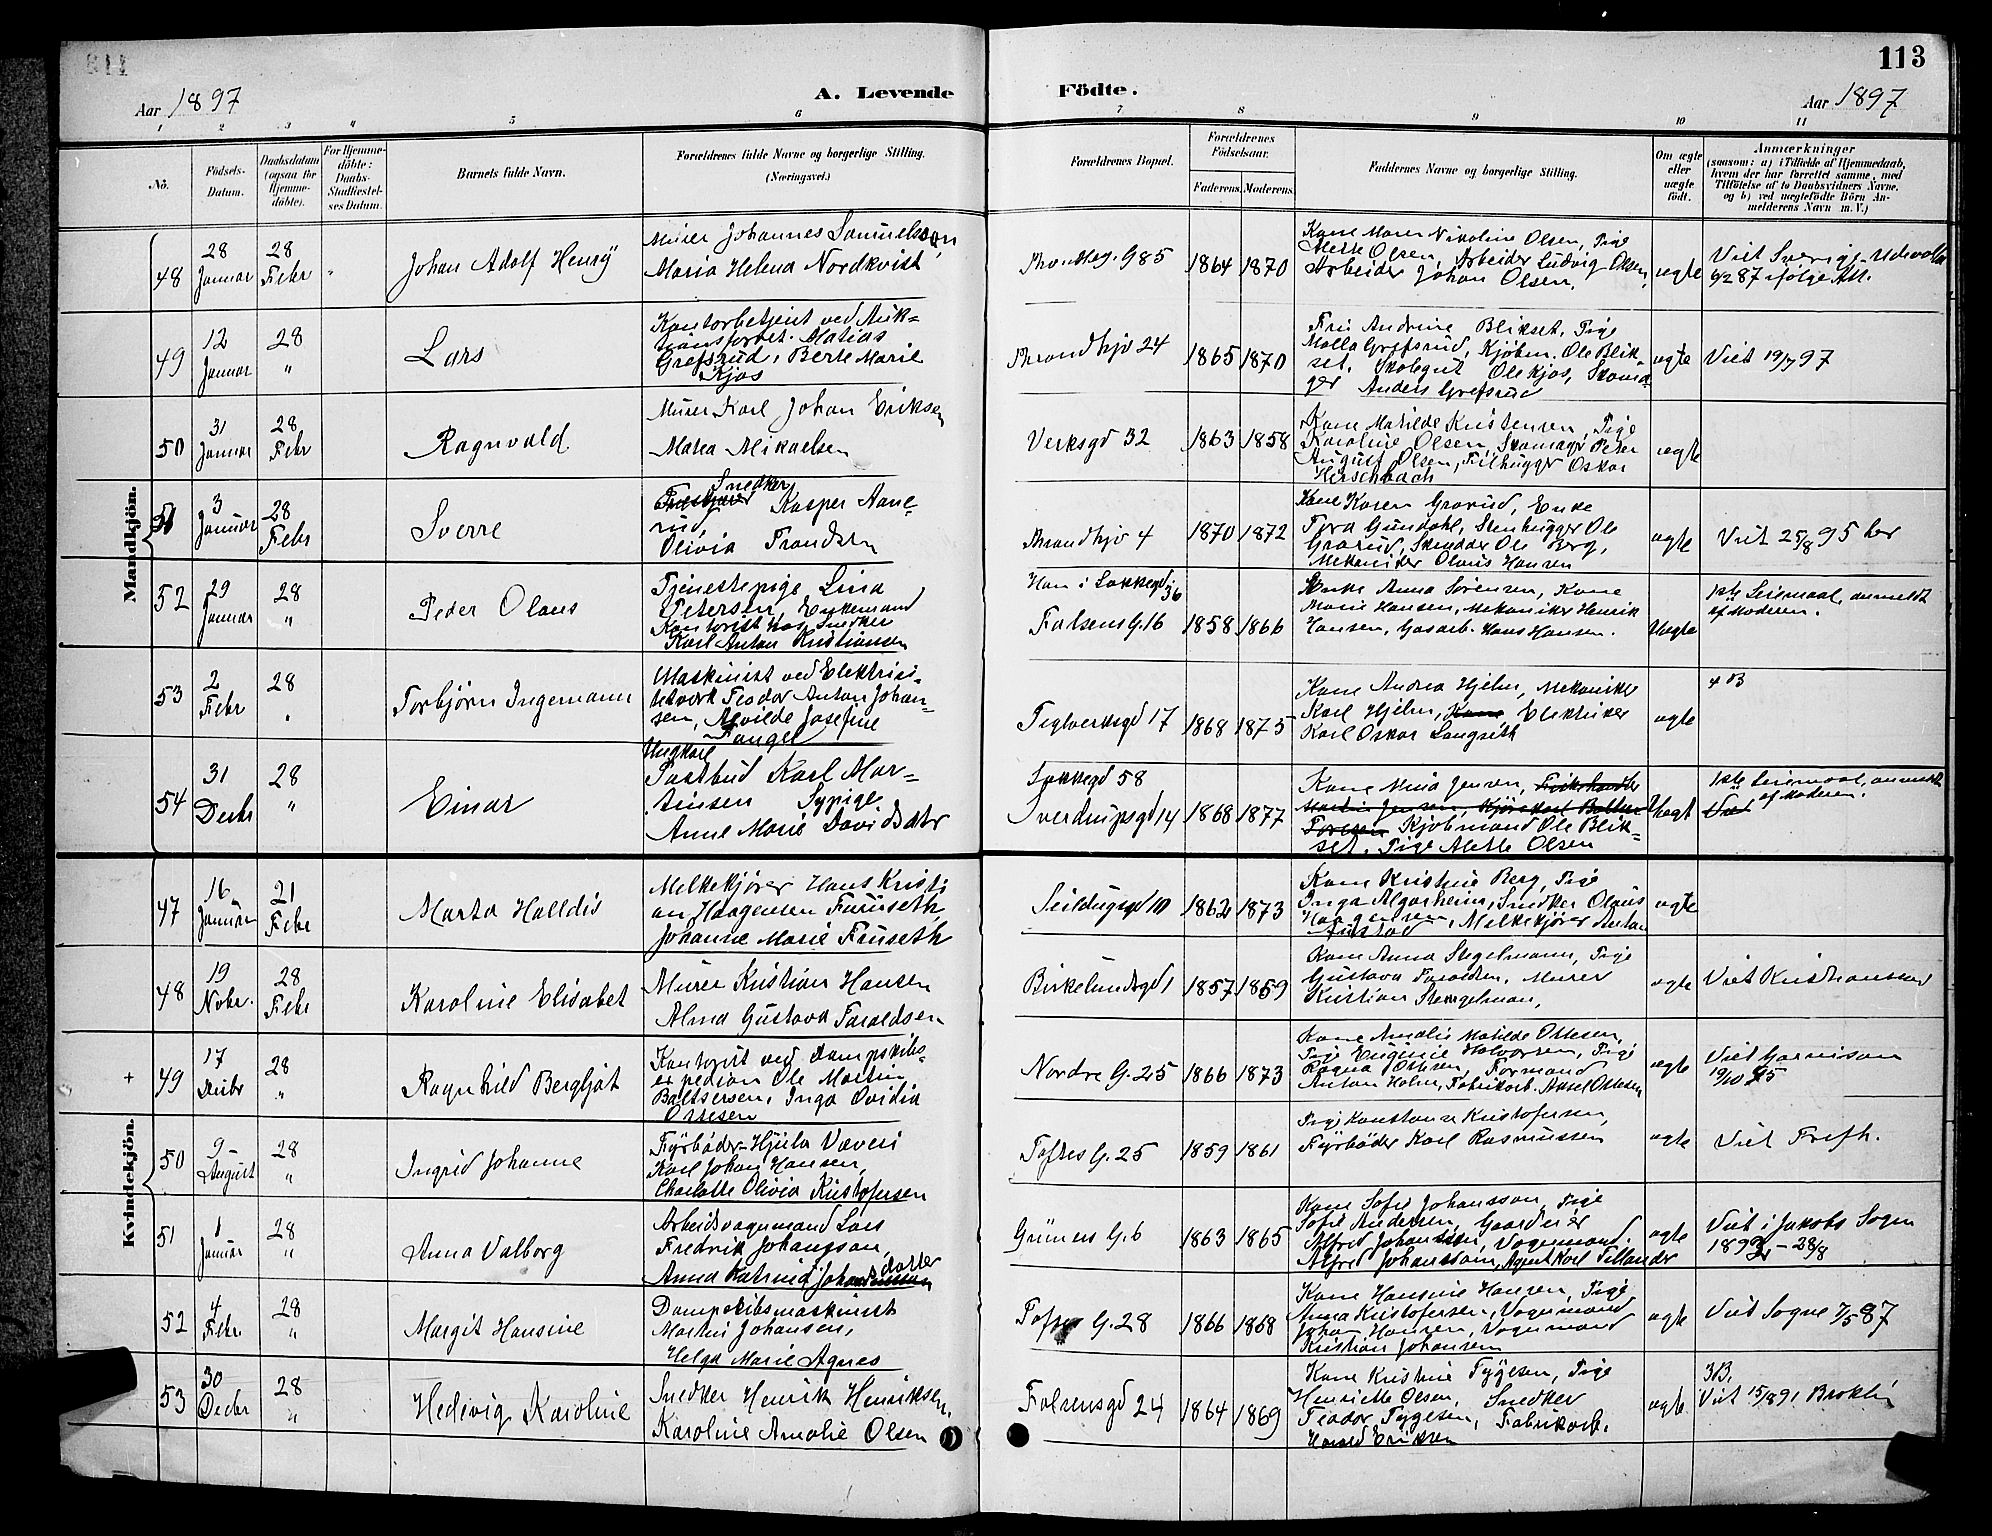 113
Aar 1897
A. Levende Födte.
Aar 1897
1 2 3 4 5 6 7 8 9 10 11
No.
Födsels-
Datum.
Daabsdatum
(ogsaa for
Hjemme-
döbte).
For Hjemme-
döbte:
Daabs-
Stadfæstel-
ses Datum.
Barnets fulde Navn.
Forældrenes fulde Navne og borgerlige Stilling.
(Næringsvei.)
Forældrenes Bopæl.
Forældrenes
Födselsaar.
Faderens. Moderens.
Faddernes Navne og borgerlige Stilling.
Om ægte
eller
uægte
födt.
Anmærkninger
(saasom: a) i Tilfælde af Hjemmedaab,
hvem der har forrettet samme, med
Tilföielse af to Daabsvidners Navne.
og b) ved uægtefödte Börn An-
melderens Navn m. V.)
Mandkjön.
48
28
Januar
28
Febr
Johan Adolf Henry
Murer Johannes Samuelsson,
Maria Helena Nordkvist
Thv. Mey. G 85
1864 1870
Kone Maren Nikoline Olsen, Pige
Mette Olsen, Arbeider Ludvig Olsen,
Arbeider Johan Olsen.
ægte
Viet Sverige Udevalla
9/2 87 ifølge Att.
49
12
Januar
28
"
Lars
Kontorbetjent ved Auk-
tionsforret. Matias
Grefsrud, Berte Marie
Kjos
Throndhjv 24
1865 1870
Fru Andrine Blikset, Pige
Molla Grefsrud, Kjøbm. Ole Blik-
set, Skolegut Ole Kjos, Skomä-
ger Anders Grefsrud
ægte
Viet 19/7 97
50
31
Januar
28
Febr
Ragnvald
Murer Karl Johan Eriksen
Matea Mikaelsen
Verksgd 32
1863 1858
Kone Matilde Kristensen, Pige
Karoline Olsen, Skomagr Peter
August Olsen, Filhugger Oskar
Herschbach
ægte
51
3
Januar
28
Febr
Sverre
Snedker
Kasper Aane-
rud,
Olivia Frandsen
Throndhjv 4
1870 1872
Kone Karen Grorud, Enke
Tora Gundahl, Stenhugger Ole
Grorud, Ole Berg,
Mekaniker Olaus Hansen
ægte
Viet 25/8 95 her
52
29
Januar
28
"
Peder Olaus
Tjenestepige Lina
Petersen, Enkemand
Kontorist hos Snedker
Karl Anton Kristiansen
Han i Sokkegd 36
Falsens G. 16
1858 1866
Enke Anna Sørensen, Kone
Marie Hansen, Mekaniker Henrik
Hansen, Gasarb. Hans Hansen.
Uægte
1ste Leiermaal, anmeldt
af Moderen.
53
2
Febr
28
"
Torbjørn Ingemann
Maskinist ved Elektrisi-
tetverk Teodor Anton Johan-
sen, Alvilde Josefine
Fangel
Teglverksgd 17
1868 1875
Kone Andrea Hjelm, Mekaniker
Karl Hjelm, Kone, Elektriker
Karl Oskar Langseth
ægte
4 B
54
31
Decbr
28
"
Einar
Ungkarl
Postbud Karl Mar-
tinsen Sypige
Anne Marie Davidsdtr
Sokkegd 58
Sverdrupsgd 14
1868 1877
Kone Mina Jensen, Fiskehandler
Martin Jensen, Kjørekarl
Kjøbmand Ole Blik-
set, Pige Mette Olsen
Uægt
1ste Leiermaal, anmeldt
af Moderen.
Viet
Kvindekjön.
47
16
Januar
21
Febr
Marta Halldis
Melkekjører Hans Kristi
an Haagensen Furuseth,
Johanne Marie Furuseth
Seildugsgd 10
1862 1873
Kone Kristine Berg, Pige
Inga Algarheim, Snedker Olaus
Haagensen, Melkekjører Anton
ægte
48
19
Nobr.
28
Febr
Karoline Elisabet
Murer Kristian Hansen
Alma Gustava Faraldsen
Birkelundsgd 1
1857 1859
Kone Anna Stegelmann, Pige
Gustava Faraldsen, Murer
Kristian Stengelman,
ægte
Viet Kristianssand
+
49
17
Decbr
28
"
Ragnhild Bergljot
Kontorist ved Dampskibs-
expedion Ole Martin
Baltsersen, Inga Ovidia
Ottesen
Nordre G. 25
1866 1873
Kone Amalie Matilde Ottesen,
Pige Eugenie Halvorsen, Pige
Ragna Ottesen, Formand
Anton Holm, Fabrikarb. Aksel Ottesen
ægte
Viet Garnison
19/10 95
50
9
August
28
"
Ingrid Johanne
Fyrbøder Hjula Væveri
Karl Johan Hansen,
Charlotte Olivia Kristofersen
Toftes G. 25
1859 1861
Pige Konstanse Kristofersen,
Fyrbøder Karl Rasmussen
ægte
Viet Trefh.
51
1
Januar
28
"
Anna Valborg
Arbeidsvognmand Lars
Fredrik Johansson,
Anna Katrina Johansdotter
Grüners G. 6
1863 1865
Kone Sofie Johansson, Pige
Sofie Andersen, Gaardeier
Alfred Johanssen, Vognmand
Alfred Johansson, Agent Karl Tillander
ægte
Viet i Jakobs Sogn
1892 - 28/8
52
4
Febr
28
"
Margit Hansine
Dampskibsmaskinist
Martin Johansen,
Helga Marie Agnes
Toftes G. 28
1866 1868
Kone Hansine Hansen, Pige
Anna Kristofersen, Vognmand
Johan Hansen, Vognmand
Kristian Johansen
ægte
Viet Sogne 7/5 87
53
30
Decbr
28
"
Hedevig Karoline
Snedker Henrik Henriksen,
Karoline Amalie Olsen
Falsensgd 24
1864 1869
Kone Kristine Tygesen, Pige
Henriette Olsen, Snedker
Teodor Tygesen, Fabrikarb.
Harald Eriksen
ægte
3 B.
Viet 15/8 91 Broklin